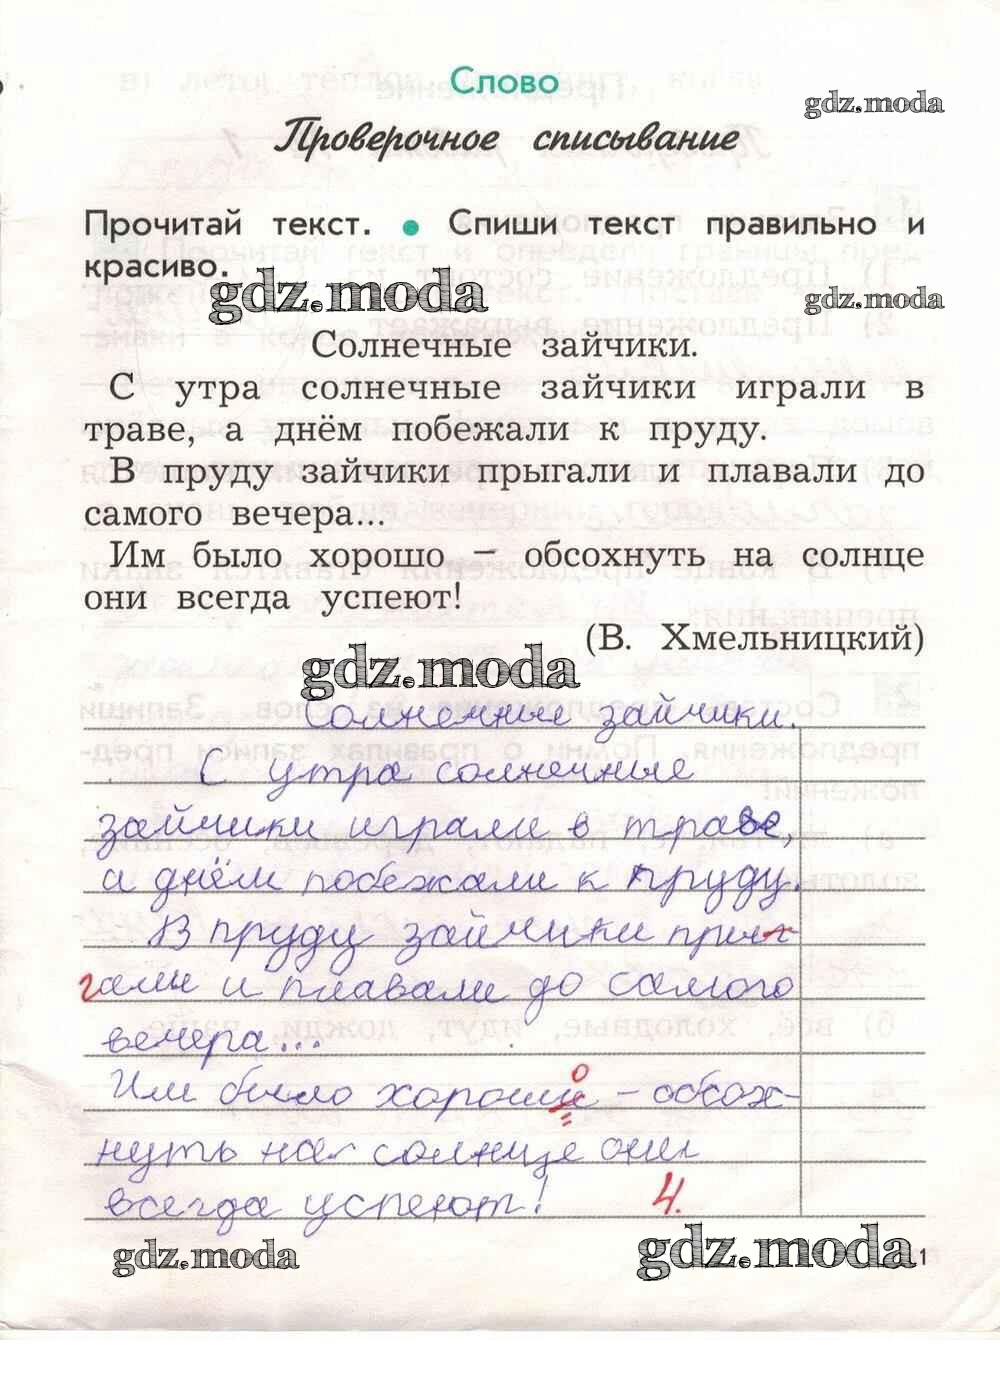 Слово
gdz.moda
Проверочное списывание
Прочитай текст. ● Спиши текст правильно и
красиво.
gdz.moda
gdz.moda
Солнечные зайчики.
С утра солнечные зайчики играли в
траве, а днём побежали к пруду.
В пруду зайчики прыгали и плавали до
самого вечера...
Им было хорошо – обсохнуть на солнце
они всегда успеют!
(В. Хмельницкий)
gdz.moda
Солнечные зайчики.
С утра солнечные
зайчики играли в траве,
а днём побежали к пруду.
В пруду зайчики пры-
гали и плавали до самого
вечера...
Им было хорошо – обсох-
нуть на солнце они
всегда успеют! 4.
gdz.moda
gdz.moda
1